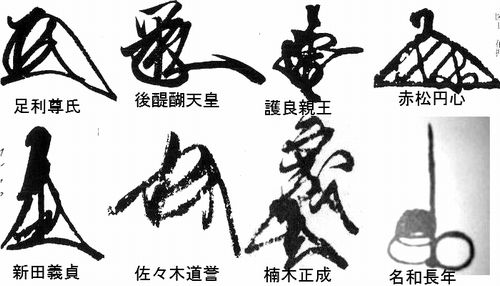 足利尊氏
後醍醐天皇
護良親王
赤松円心
新田義貞
佐々木道誉
楠木正成
名和長年